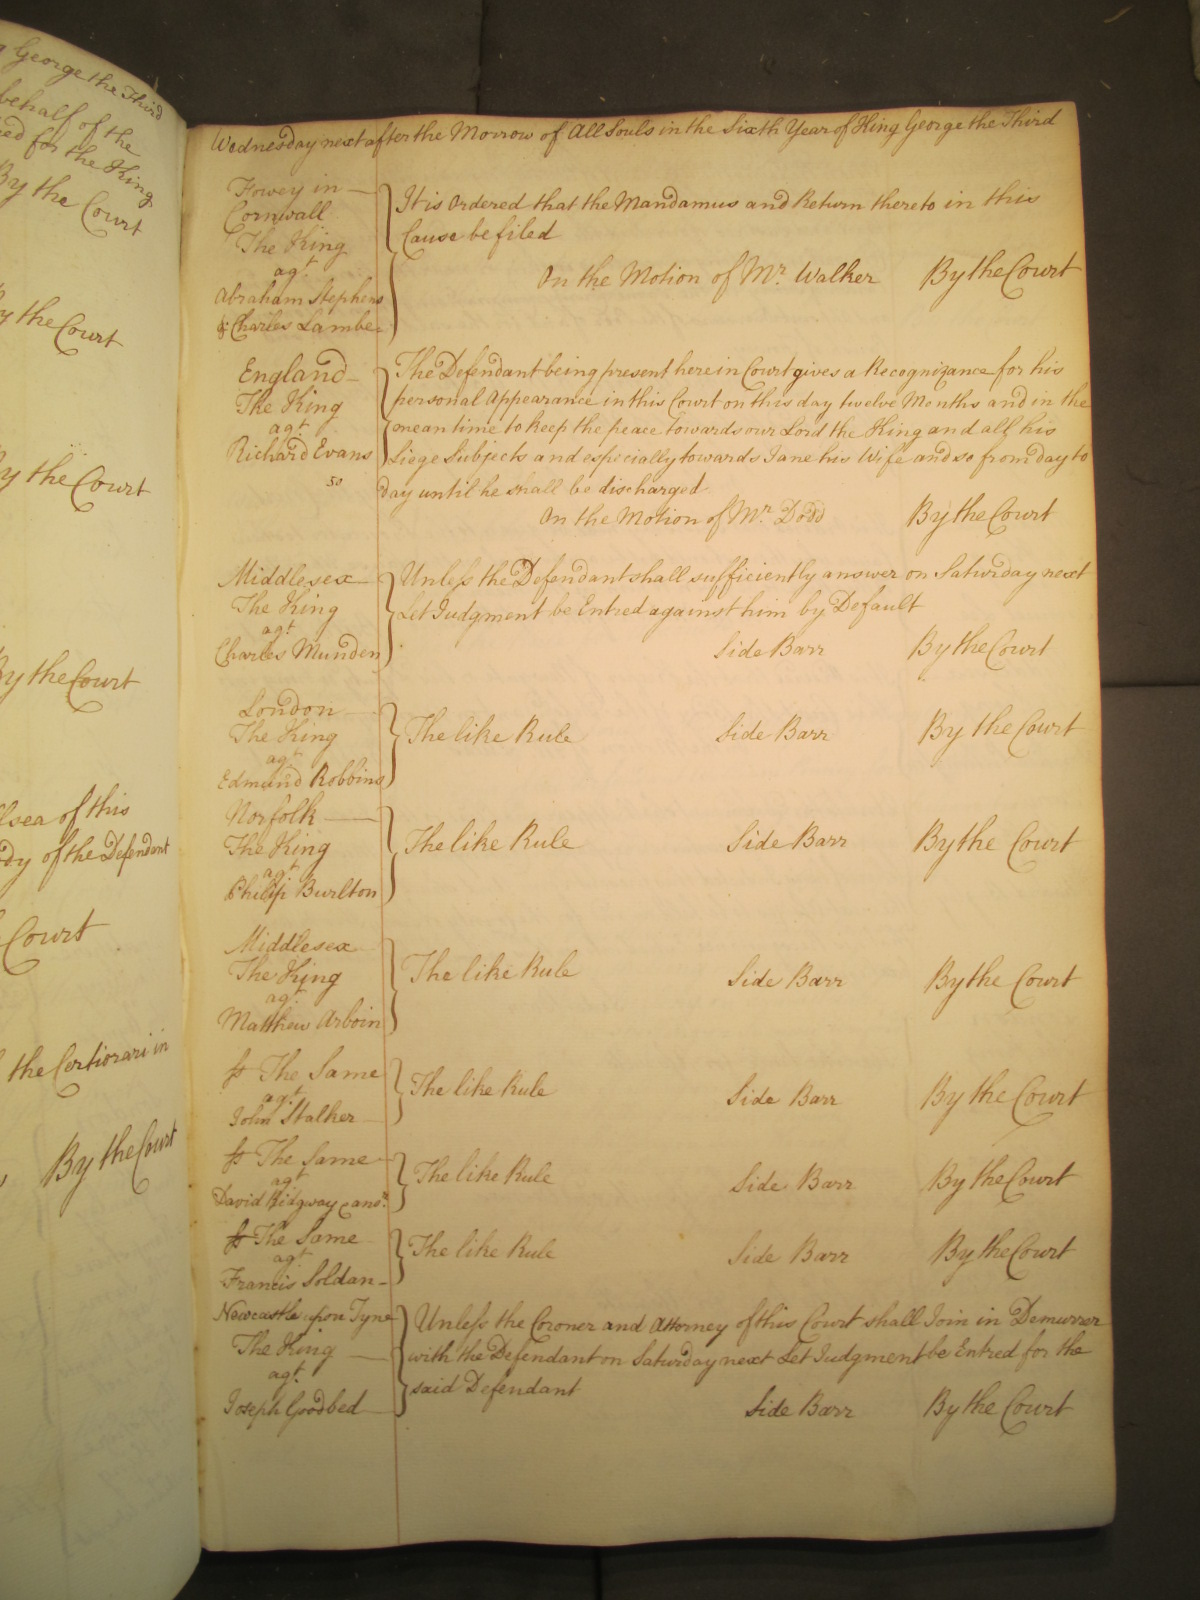 George the Third
behalf of the
for the King
By the Court
By the Court
By the Court
By the Court
of this
of the Defendant
Court
the Certiorari in
By the Court
Wednesday next after the Morrow of All Souls in the Sixth Year of King George the Third
Fowey in
Cornwall
The King
agt
Abraham Stephens
& Charles Lambe
It is Ordered that the Mandamus and Return thereto in this
Cause be filed
On the Motion of Mr. Walker By the Court
England
The King
agt
Richard Evans
so
The Defendant being present here in Court gives a Recognizance for his
personal Appearance in this Court on this day twelve Months and in the
mean time to keep the peace towards our Lord the King and all his
Liege Subjects and especially towards Jane his Wife and so from day to
day until he shall be discharged
On the Motion of Mr. Dodd By the Court
Middlesex
The King
agt
Charles Munden
Unless the Defendant shall sufficiently answer on Saturday next
Let Judgment be Entred against him by Default
Side Barr By the Court
London
The King
agt
Edmund Robbins
The like Rule Side Barr By the Court
Norfolk
The King
agt
Philip Burlton
The like Rule Side Barr By the Court
Middlesex
The King
agt
Matthew Arboin
The like Rule Side Barr By the Court
The Same
agt
John Stalker
The like Rule Side Barr By the Court
The Same
agt
David Ridgway
The like Rule Side Barr By the Court
The Same
agt
Francis Soldan
The like Rule Side Barr By the Court
Newcastle upon Tyne
The King
agt
Joseph Goodbed
Unless the Coroner and Attorney of this Court shall Join in Demurrer
with the Defendant on Saturday next Let Judgment be Entred for the
said Defendant
Side Barr By the Court